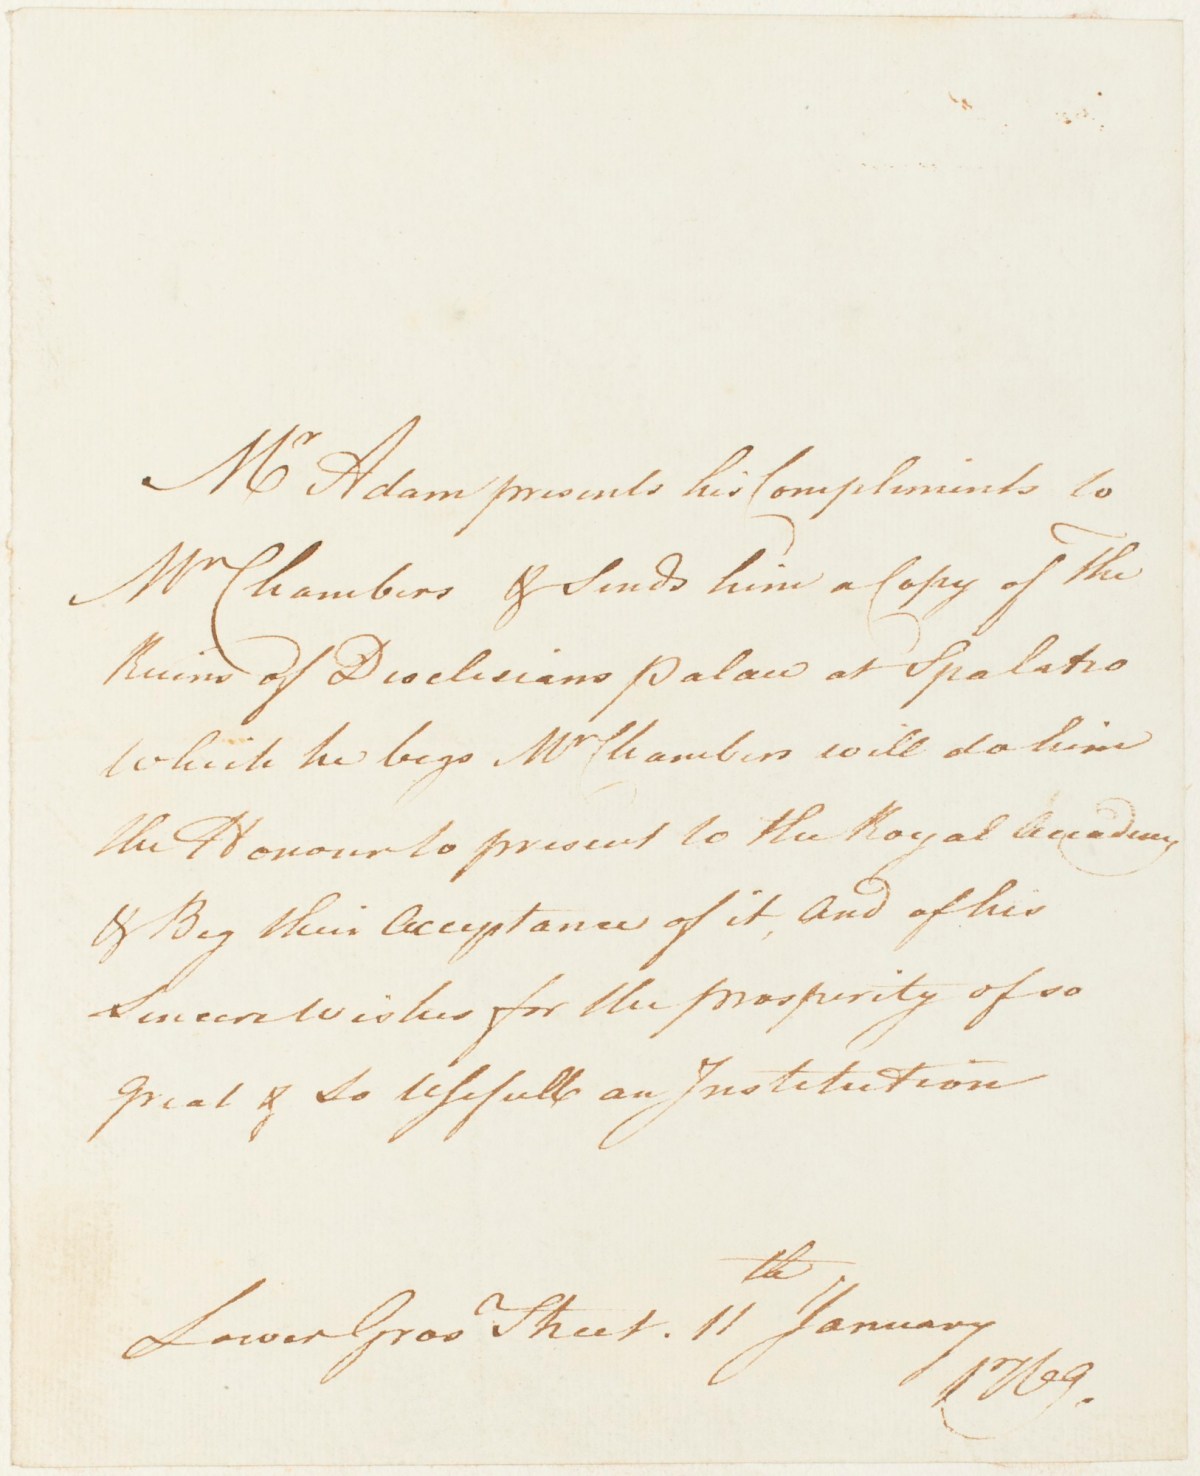 Mr Adam presents his Compliments to
Mr Chambers & Sends him a Copy of The
Ruins of Dioclesians palace at Spalatro
which he begs Mr Chambers will do him
the Honour to present to the Royal Accademy
& Beg their Acceptance of it, And of his
Sincere Wishes for the prosperity of so
great & So Usefull an Institution
Lower Gros.r Street. 11th January
1769.